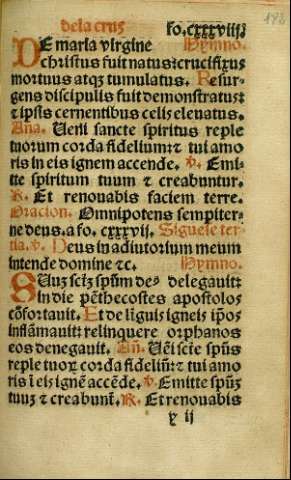 182
dela cruz fo.cxxxviij.
DE maria virgine Hymno.
christus fuit natus: crucifixus
mortuus atqz tumulatus. Resur-
gens discipulis fuit demonstratus: 
⁊ ipsis cernentibus celis eleuatus.
Ana. Ueni sancte spiritus reple
tuorum corda fidelium: ⁊ tui amo
ris in eis ignem accende. ℣. Emi-
tte spiritum tuum ⁊ creabuntur.
℟. Et renouabis faciem terre.
Oracion. Omnipotens sempiter-
ne deus. a fo. cxxxvij. Siguese ter-
tia. ℣. Deus in adiutorium meum
intende domine ⁊c. Hymno.
SUuz sctz spūm de- delegauit:
in die pēthecostes apostolos
cōfortauit. Et de līguis igneis ip̄os
inflāmauit: relinquere orphanos
eos denegauit. Añ. Uēi scte spūs
reple tuoꝝ corda fideliū: ⁊ tui amo
ris ī eis ignē accēde. ℣. Emitte spūz
tuuz ⁊ creabunť. ℟. Et renouabis
x ij